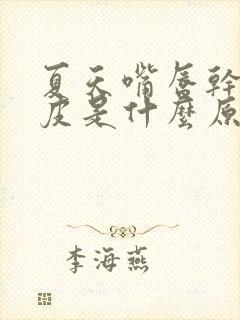 夏天嘴唇幹
皮是什麼原
李海燕